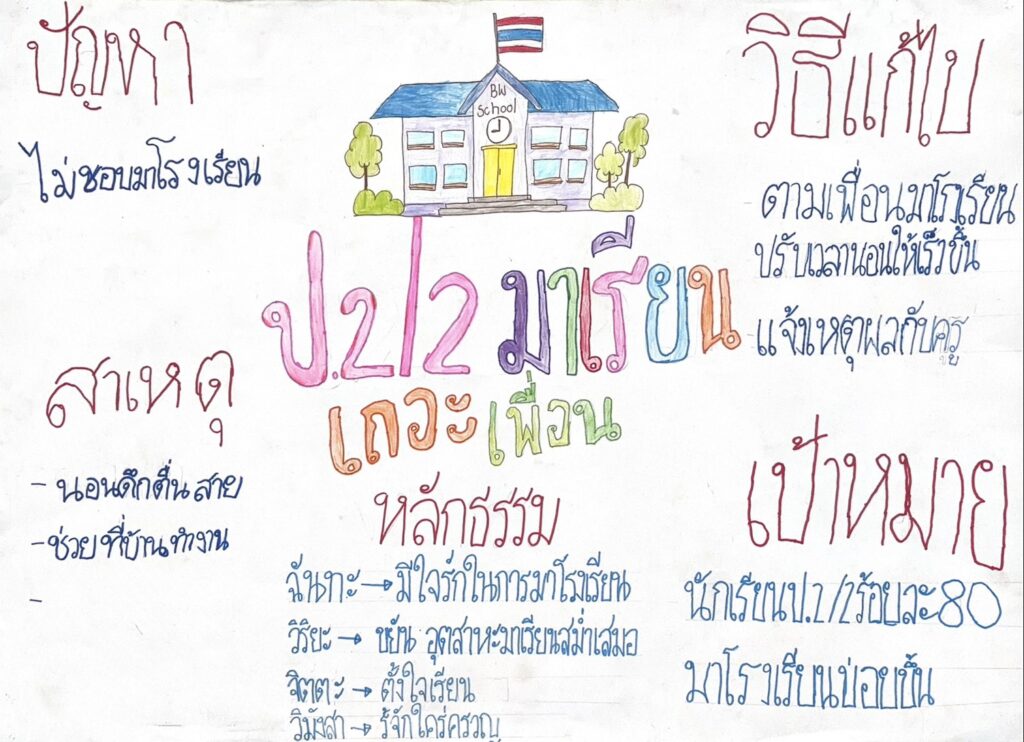 ปัญหา
ไม่ชอบมาโรงเรียน
สาเหตุ
- นอนดึกตื่นสาย
- ช่วยที่บ้านทำงาน
-
BW
School
ป.2/2 มาเรียน
เถอะเพื่อน
หลักธรรม
ฉันทะ → มีใจรักในการมาโรงเรียน
วิริยะ → ขยัน อุตสาหะมาเรียนสม่ำเสมอ
จิตตะ → ตั้งใจเรียน
วิมังสา → รู้จักใคร่ครวญ
วิธีแก้ไข
ตามเพื่อนมาโรงเรียน
ปรับเวลานอนให้เร็วขึ้น
แจ้งเหตุผลกับครู
เป้าหมาย
นักเรียนป.2/2ร้อยละ80
มาโรงเรียนบ่อยขึ้น